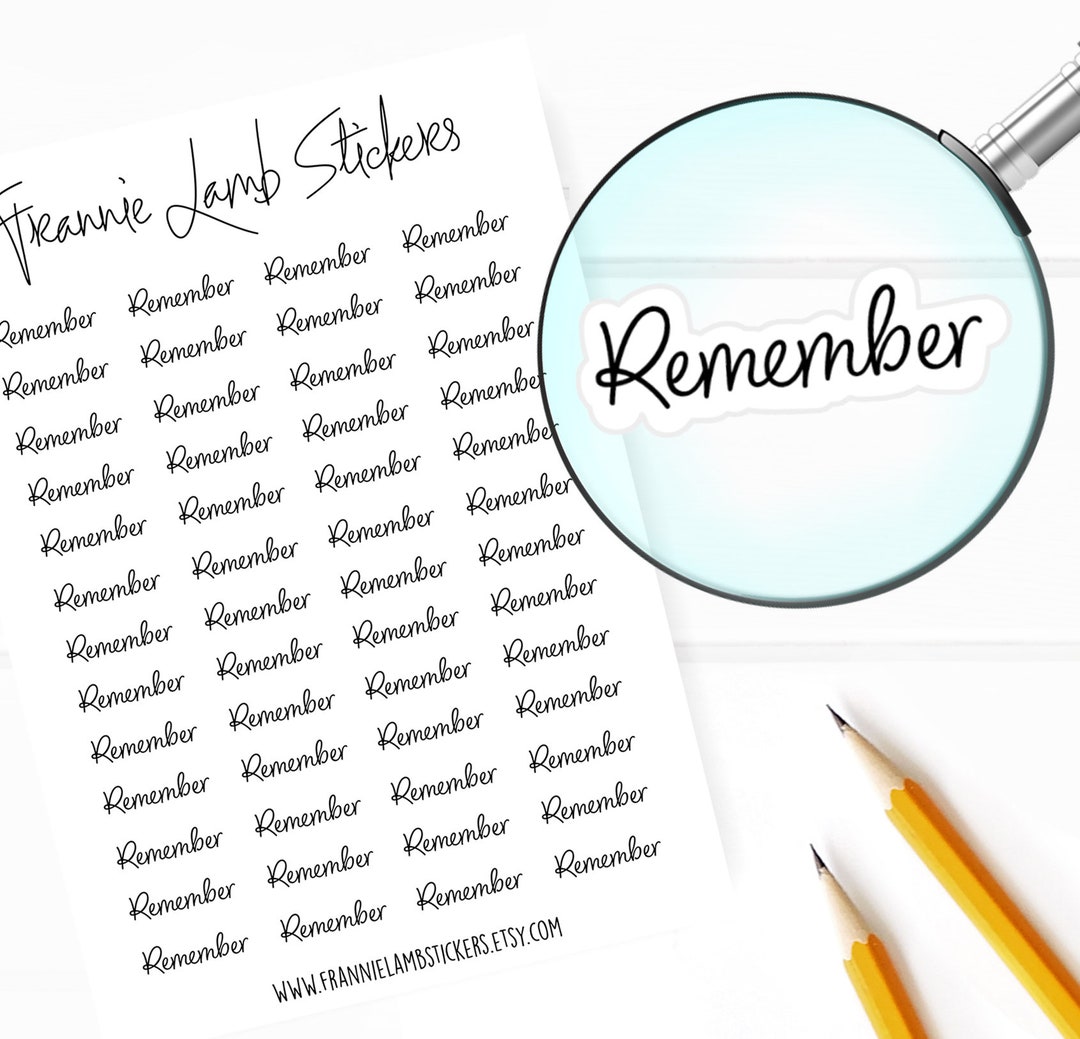 Frannie Lamb Stickers
Remember Remember Remember Remember
Remember Remember Remember Remember
Remember Remember Remember Remember
Remember Remember Remember Remember
Remember Remember Remember Remember
Remember Remember Remember Remember
Remember Remember Remember Remember
Remember Remember Remember Remember
Remember Remember Remember Remember
Remember Remember Remember Remember
Remember Remember Remember Remember
Remember Remember Remember Remember
Remember Remember Remember Remember
WWW.FRANNIELAMBSTICKERS.ETSY.COM
Remember